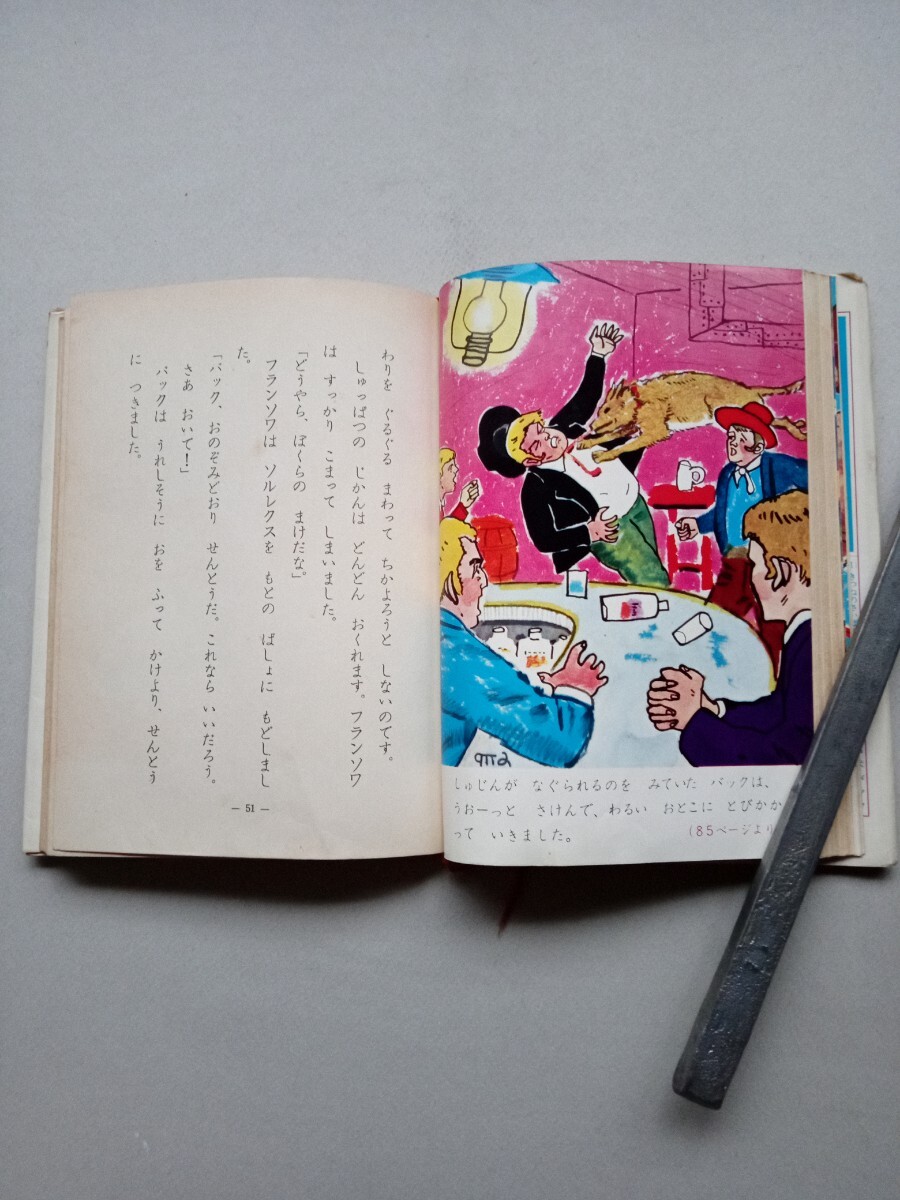 わりを　ぐるぐる　まわって　ちかよろうと　しないのです。
しゅっぱつの　じかんは　どんどん　おくれます。フランソワ
は　すっかり　こまって　しまいました。
「どうやら、ぼくらの　まけだな」
フランソワは　ソルレクスを　もとの　ばしょに　もどしまし
た。
「バック、おのぞみどおり　せんとうだ。これなら　いいだろう。
さあ　おいで！」
バックは　うれしそうに　おを　ふって　かけより、せんとう
に　つきました。
— 51 —
しゅじんが　なぐられるのを　みていた　バックは、
うおーっと　さけんで、わるい　おとこに　とびかか
って　いきました。
(85ページより